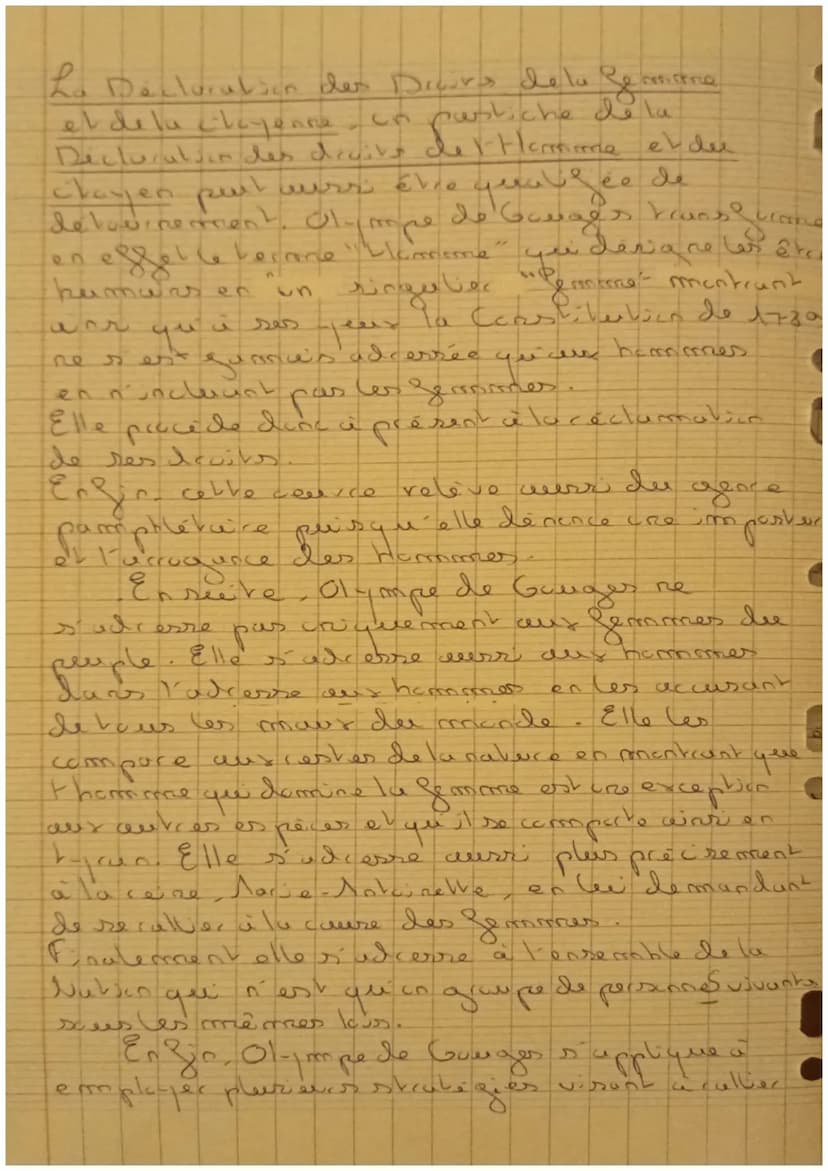 La Déclaration des Droits de la femme
et de la citoyenne, un pastiche de la
Déclaration des droits de l'Homme et du
citoyen peut aussi être qualifée de
détournement. Olympe de Gouges transforme
en effet le terme "Homme" qui désigne les êtr
humains en un singulier "femme" montrant
qu'à ses yeux la Constitution de 1789
ne s'est jamais adressée qu'aux hommes
en n'incluant pas les femmes.
Elle procède donc à présent à la réclamation
de ses droits.
Enfin, cette œuvre relève aussi du genre
pamphlétaire puisqu'elle dénonce une impostur
et l'arrogance des Hommes.
Ensuite, Olympe de Gouges ne
s'adresse pas uniquement aux femmes du
peuple. Elle s'adresse aussi aux hommes
dans l'adresse aux hommes en les accusant
de tous les maux du monde. Elle les
compare aux restes de la nature en montrant que
l'homme qui domine la femme est une exception
aux autres espèces et qu'il se comporte ainsi en
tyran. Elle s'adresse aussi plus précisement
à la reine, Marie-Antoinette, en lui demandant
de se rallier à la cause des femmes.
Finalement elle s'adresse à l'ensemble de la
Nation qui n'est qu'un groupe de personnes vivants
sous les mêmes lois.
Enfin, Olympe de Gouges s'applique à
employer plusieurs stratégies visant à rallier